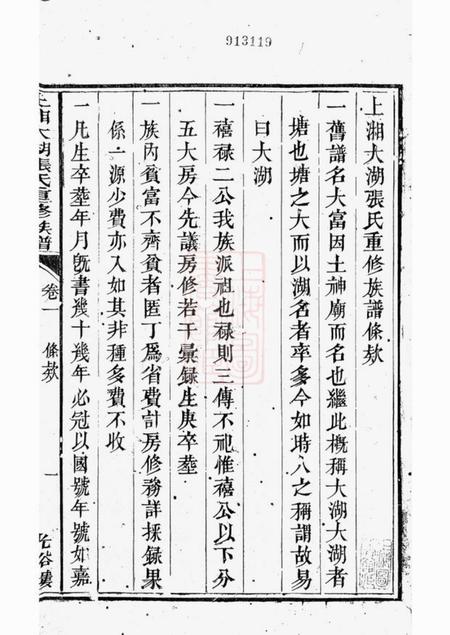 913119
上湘大湖張氏重修族譜條欵
一舊譜名大富因土神廟而名也繼此概稱大湖大湖者
塘也塘之大而以湖名者卒多今如時人之稱謂故易
曰大湖
一禧祿二公我族派祖也祿則三傳不祀惟禧公以下分
五大房今先議房修若干彙錄生庚卒塟
一族內貧富不齊貧者匿丁爲省費計房修務詳採錄果
係一源少費亦入如其非種多費不收
一凡生卒塟年月旣書幾十幾年必冠以國號年號如嘉
上湘大湖張氏重修族譜
卷一
條欵
一